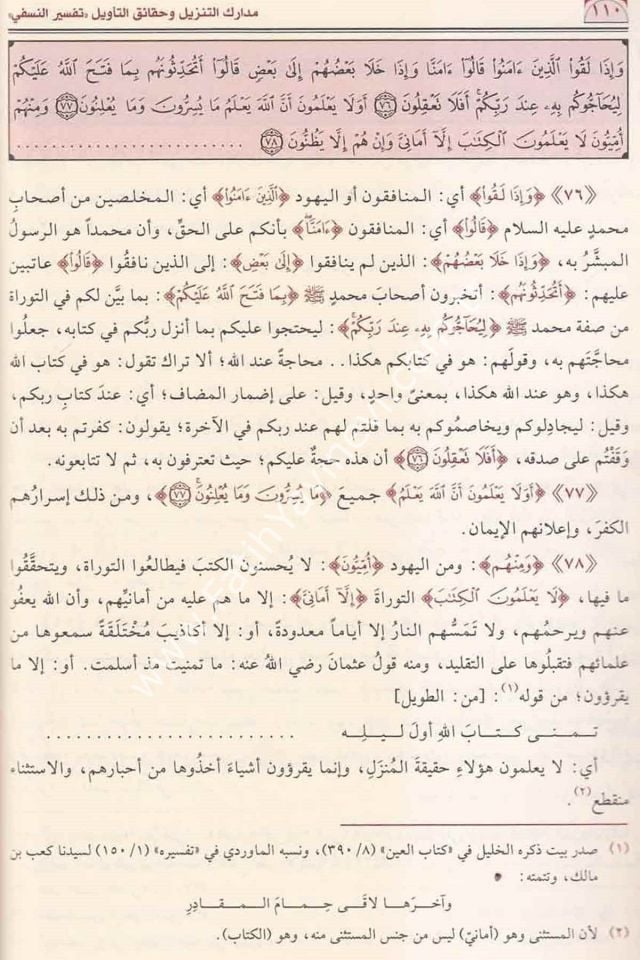 ١١٠
مدارك التنزيل وحقائق التأويل «تفسير النسفي»
وَإِذَا لَقُوا۟ ٱلَّذِينَ ءَامَنُوا۟ قَالُوٓا۟ ءَامَنَّا وَإِذَا خَلَا بَعْضُهُمْ إِلَىٰ بَعْضٍ قَالُوٓا۟ أَتُحَدِّثُونَهُم بِمَا فَتَحَ ٱللَّهُ عَلَيْكُمْ
لِيُحَآجُّوكُم بِهِۦ عِندَ رَبِّكُمْ ۚ أَفَلَا تَعْقِلُونَ ٧٦ أَوَلَا يَعْلَمُونَ أَنَّ ٱللَّهَ يَعْلَمُ مَا يُسِرُّونَ وَمَا يُعْلِنُونَ ٧٧ وَمِنْهُمْ
أُمِّيُّونَ لَا يَعْلَمُونَ ٱلْكِتَٰبَ إِلَّآ أَمَانِىَّ وَإِنْ هُمْ إِلَّا يَظُنُّونَ ٧٨ . . . . . . . . . . . . . . . . . . . . . . . .
﴿٧٦﴾ ﴿وَإِذَا لَقُوا۟﴾ أي: المنافقون أو اليهود ﴿ٱلَّذِينَ ءَامَنُوا۟﴾ أي: المخلصين من أصحاب
محمدٍ عليه السلام ﴿قَالُوٓا۟﴾ أي: المنافقون ﴿ءَامَنَّا﴾ بأنكم على الحقّ، وأن محمداً هو الرسولُ
المبشَّرُ به، ﴿وَإِذَا خَلَا بَعْضُهُمْ﴾: الذين لم ينافقوا ﴿إِلَىٰ بَعْضٍ﴾: إلى الذين نافقُوا ﴿قَالُوٓا۟﴾ عاتبين
عليهم: ﴿أَتُحَدِّثُونَهُم﴾: أتخبرون أصحابَ محمدٍ ﷺ ﴿بِمَا فَتَحَ ٱللَّهُ عَلَيْكُمْ﴾: بما بيَّن لكم في التوراة
من صفة محمد ﷺ ﴿لِيُحَآجُّوكُم بِهِۦ عِندَ رَبِّكُمْ ۚ﴾: ليحتجوا عليكم بما أنزل ربُّكم في كتابه، جعلُوا
محاجَّتَهم به، وقولَهم: هو في كتابكم هكذا.. محاجةً عند الله؛ ألا تراك تقول: هو في كتاب الله
هكذا، وهو عند الله هكذا، بمعنىً واحدٍ، وقيل: على إضمار المضاف؛ أي: عندَ كتابِ ربكم،
وقيل: ليجادِلوكم ويخاصمُوكم به بما قلتم لهم عند ربكم في الآخرة؛ يقولون: كفرتم به بعد أن
وَقَفْتُم على صدقه، ﴿أَفَلَا تَعْقِلُونَ ٧٦﴾ أن هذه حجةٌ عليكم؛ حيث تعترفون به، ثم لا تتابعونه.
﴿٧٧﴾ ﴿أَوَلَا يَعْلَمُونَ أَنَّ ٱللَّهَ يَعْلَمُ﴾ جميعَ ﴿مَا يُسِرُّونَ وَمَا يُعْلِنُونَ ٧٧﴾، ومن ذلك إسرارُهم
الكفرَ، وإعلانهم الإيمان.
﴿٧٨﴾ ﴿وَمِنْهُمْ﴾: ومن اليهود ﴿أُمِّيُّونَ﴾: لا يُحسنون الكتبَ فيطالعُوا التوراةَ، ويتحقَّقُوا
ما فيها، ﴿لَا يَعْلَمُونَ ٱلْكِتَٰبَ﴾ التوراةَ ﴿إِلَّآ أَمَانِىَّ﴾: إلا ما هم عليه من أمانيِّهم، وأن الله يعفُو
عنهم ويرحمُهم، ولا تَمَسُّهم النارُ إلا أياماً معدودةً، أو: إلا أكاذيبَ مُخْتَلَقَةً سمعوها من
علمائهم فتقبلُوها على التقليد، ومنه قولُ عثمانَ رضي اللهُ عنه: ما تمنيت مذ أسلمت. أو: إلا ما
يقرؤون؛ من قوله(١): [من: الطويل]
تـمـنـى كـتـابَ اللهِ أولَ لـيـلِـه . . . . . . . . . . . . . . . . . . . . . . . .
أي: لا يعلمون هؤلاءِ حقيقةَ المُنزَلِ، وإنما يقرؤون أشياءَ أخذُوها من أحبارهم، والاستثناء
منقطع(٢).
(١) صدر بيت ذكره الخليل في «كتاب العين» (٣٩٠/٨)، ونسبه الماوردي في «تفسيره» (١٥٠/١) لسيدنا كعب بن
مالك، وتتمته:
وآخـرَهـا لاقَـى حِـمـامَ الـمـقـادِرِ
(٢) لأن المستثنى وهو (أمانيّ) ليس من جنس المستثنى منه، وهو (الكتاب).